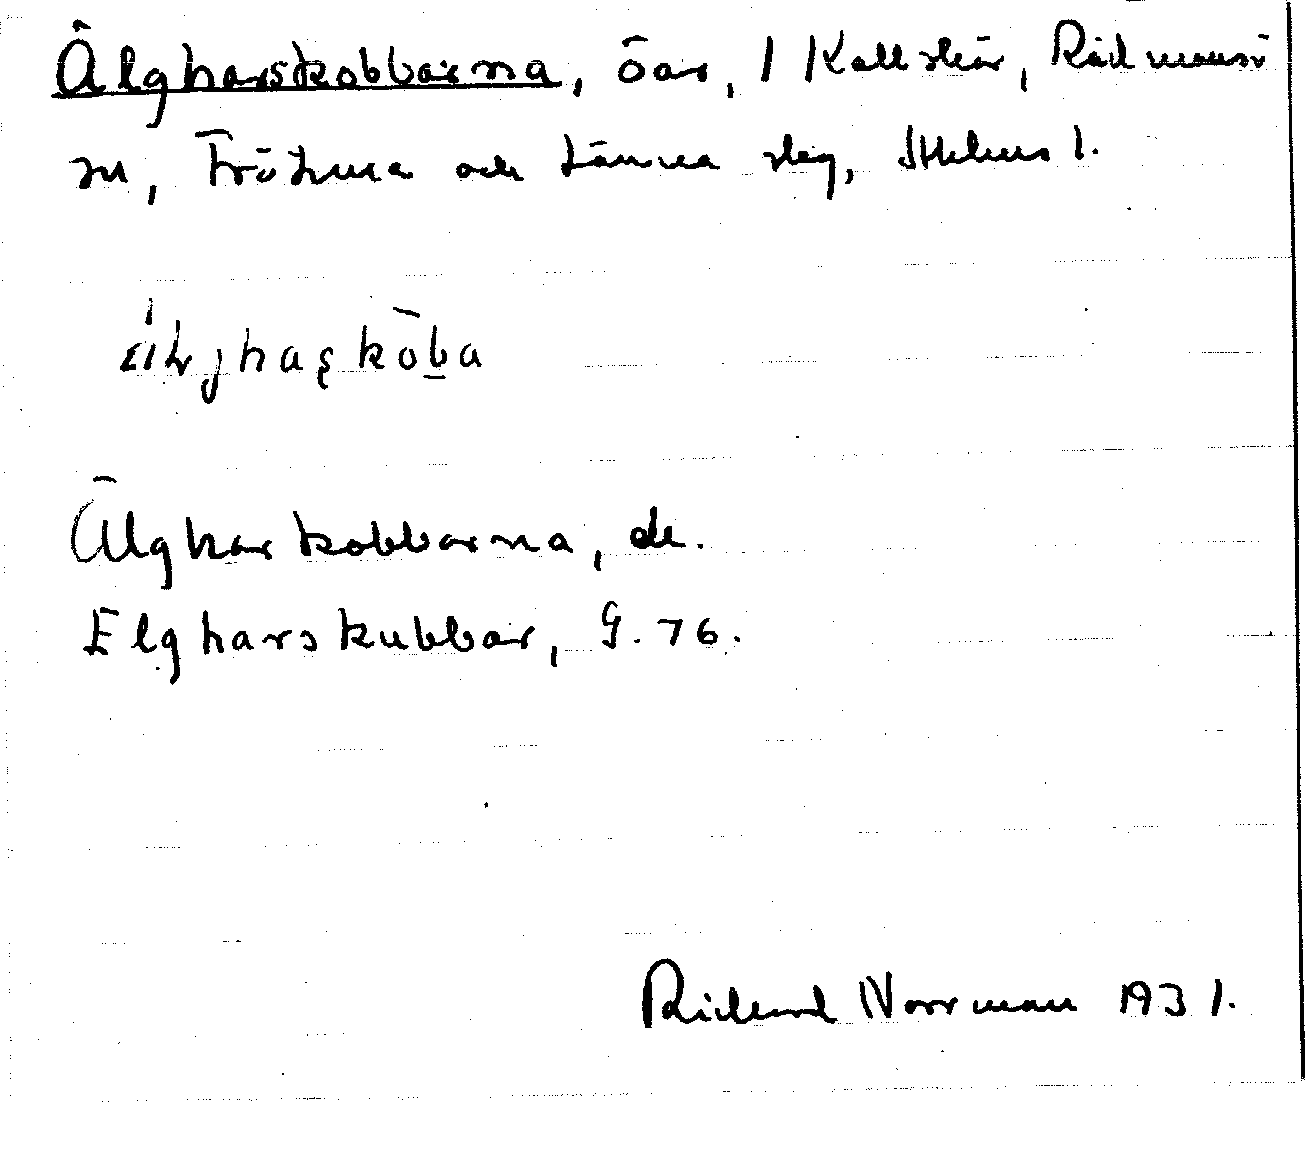 Älgharskobbarna, öar, 1 Kallskär, Rådmansö
sn, Frötuna och Länna skg, Sthlms l.
Älgharkobbarna, de.
Elgharskubbar, G. 76.
Rickard Norrman 1931.